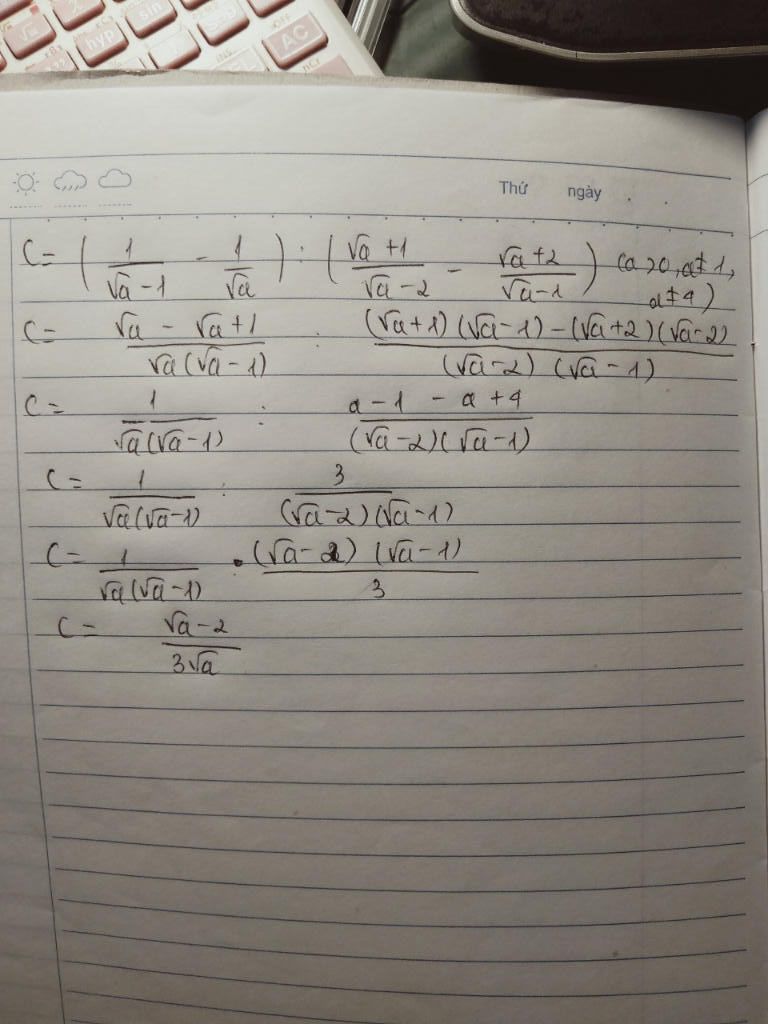 hyp sin OFF AC nCr
Thứ ngày . .
C = ( 1/(√a - 1) - 1/√a ) : ( (√a + 1)/(√a - 2) - (√a + 2)/(√a - 1) ) (a > 0, a ≠ 1, a ≠ 4)
C = (√a - √a + 1)/(√a(√a - 1)) : ((√a + 1)(√a - 1) - (√a + 2)(√a - 2))/((√a - 2)(√a - 1))
C = 1/(√a(√a - 1)) : (a - 1 - a + 4)/((√a - 2)(√a - 1))
C = 1/(√a(√a - 1)) : 3/((√a - 2)(√a - 1))
C = 1/(√a(√a - 1)) . ((√a - 2)(√a - 1))/3
C = (√a - 2)/(3√a)